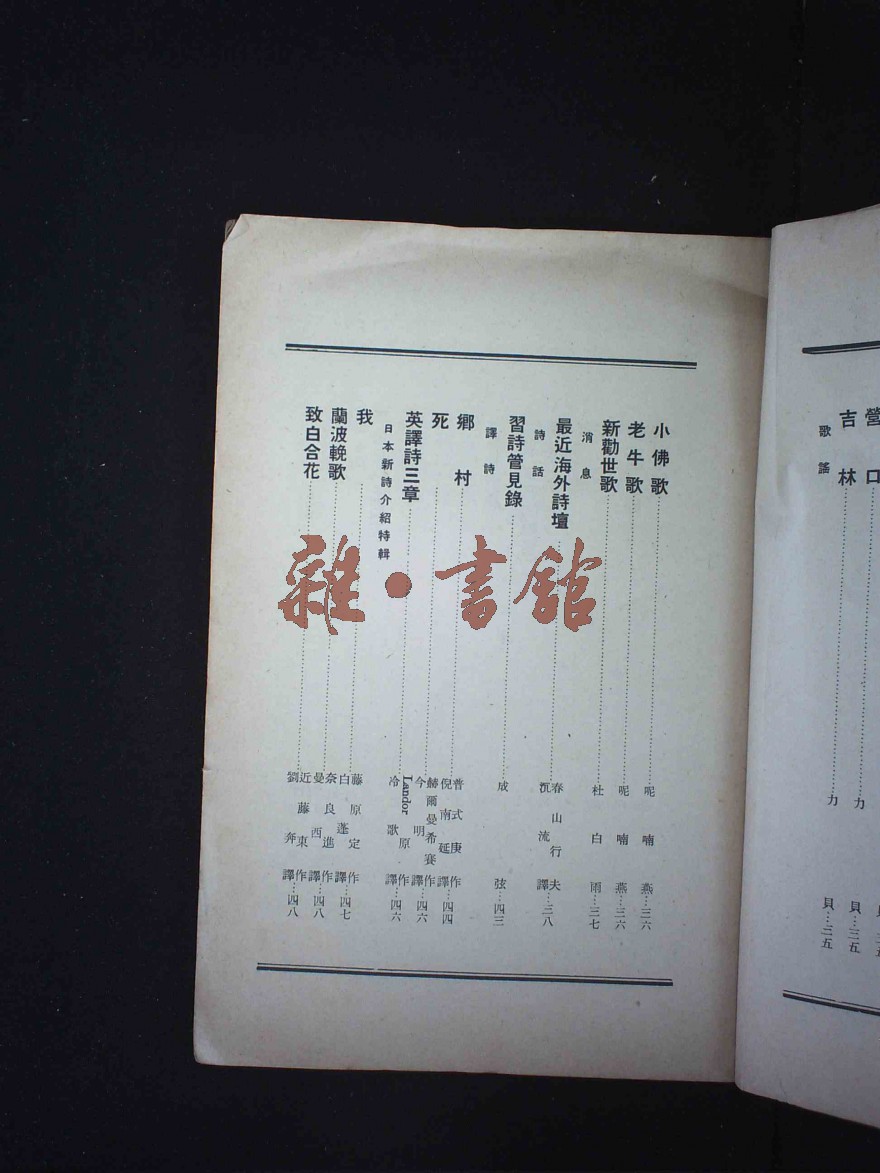 營口
吉林……力貝…三五
歌謠
小佛歌……呢喃燕…三六
老牛歌……呢喃燕…三六
新勸世歌……杜白雨…三七
消息
最近海外詩壇……春山行夫
沉流譯…三八
詩話
習詩管見錄……成弦…四三
譯詩
鄉村……普式庚作
倪南延譯…四四
死……赫爾曼希賽作
今明譯…四六
英譯詩三章……Landor原作
冷歌譯…四六
日本新詩介紹特輯
我……藤原定作
白蓬譯…四七
蘭波輓歌……奈良進作
曼西譯…四八
致白合花……近藤東作
劉奔譯…四八
雜·書館